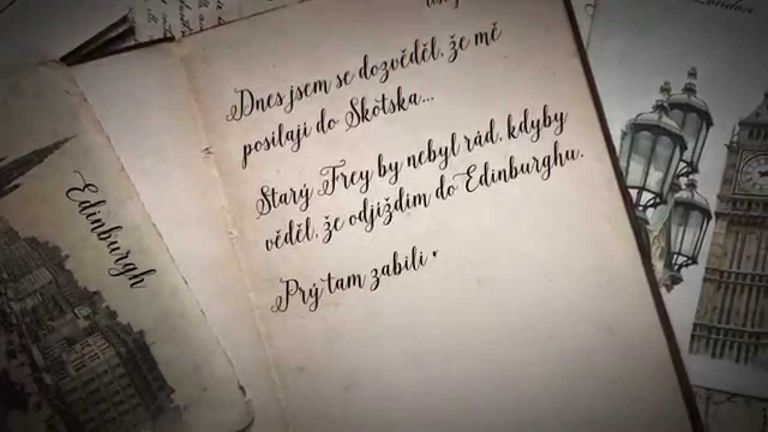 London
Dnes jsem se dozvěděl, že mě
posílají do Skotska...
Starý Frey by nebyl rád, kdyby
věděl, že odjíždím do Edinburghu.
Prý tam zabili
Edinburgh